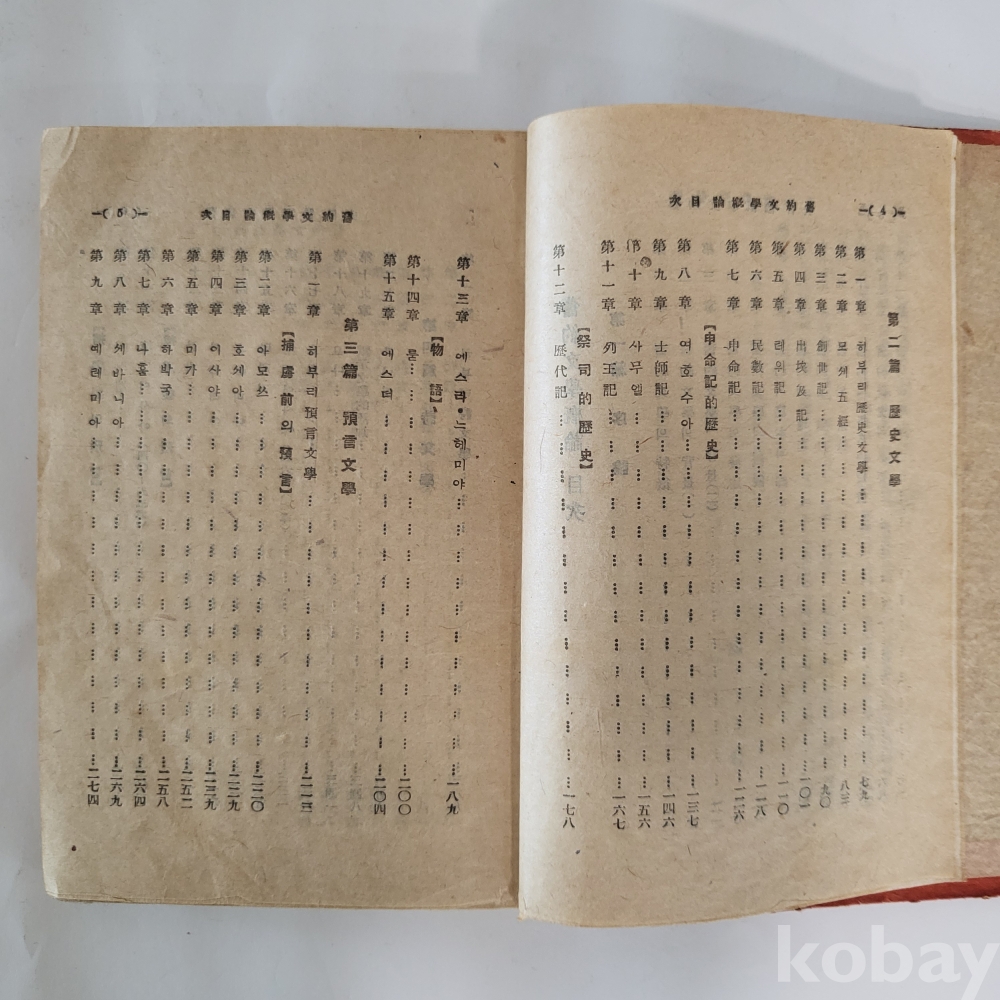 —(4)— 舊約文學槪論目次
第二篇 歷史文學
第一章 히부리歷史文學………七九
第二章 모세五經………八三
第三章 創世記………九〇
第四章 出埃及記………
第五章 레위記………一一〇
第六章 民數記………一一八
第七章 申命記………一二六
【申命記的歷史】
第八章 여호수아………一三七
第九章 士師記………一四六
第十章 사무엘………一五六
第十一章 列王記………一六七
【祭司的歷史】
第十二章 歷代記………一七八
—(5)— 舊約文學槪論目次
第十三章 에스라・느헤미야………一八九
【物語】
第十四章 룻………二〇〇
第十五章 에스더………二〇四
第三篇 預言文學
第一章 히부리預言文學………二一三
【捕虜前의預言】
第二章 아모쓰………二二〇
第三章 호세아………二二九
第四章 이사야………二三九
第五章 미가………二五二
第六章 하박국………二五八
第七章 나훔………二六四
第八章 쎄바니아………二六九
第九章 예레미아………二七四
kobay